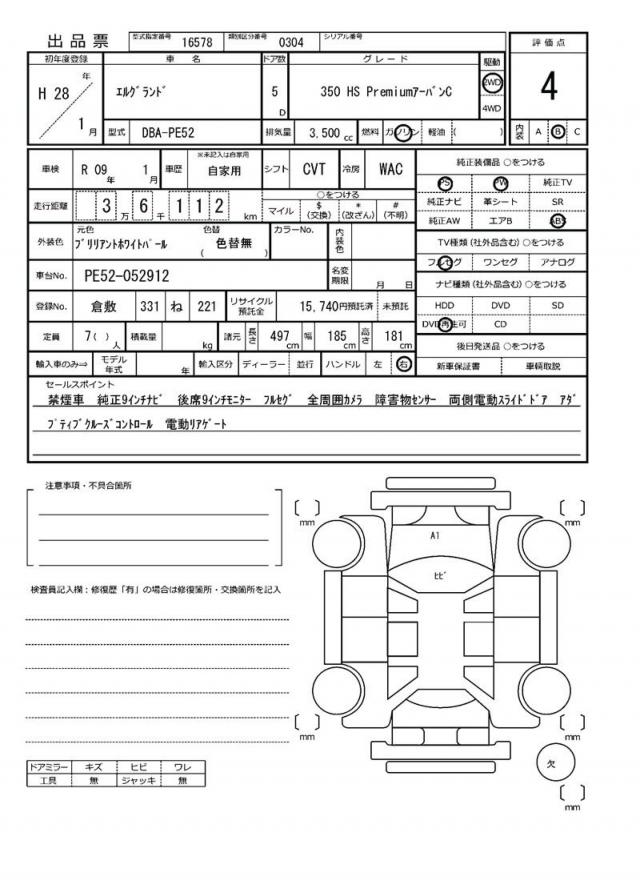 出品票 型式指定番号 16578 類別区分番号 0304 シリアル番号
評価点
初年度登録 車名 ドア数 グレード 駆動
H 28 年 1 月 エルグランド 5 D 350 HS PremiumアーバンC 2WD 4WD 4
型式 DBA-PE52 排気量 3,500 cc 燃料 ガソリン 軽油 ( ) 内装 A B C
車検 R 09 年 1 月 車歴 ※未記入は自家用 自家用 シフト CVT 冷房 WAC
走行距離 3 万 6 千 1 1 2 km ○をつける マイル $ (交換) * (改ざん) # (不明)
外装色 元色 ブリリアントホワイトパール 色替 ( 色替無 ) カラーNo. 内装色
車台No. PE52-052912 名変期限 月 日
登録No. 倉敷 331 ね 221 リサイクル預託金 15,740円預託済 未預託
定員 7( ) 人 積載量 kg 諸元 長さ 497 cm 幅 185 cm 高さ 181 cm
輸入車のみ⇒ モデル年式 年 輸入区分 ディーラー 並行 ハンドル 左 右
純正装備品 ○をつける
PS PW 純正TV
純正ナビ 革シート SR
純正AW エアB ABS
TV種類 (社外品含む) ○をつける
フルセグ ワンセグ アナログ
ナビ種類 (社外品含む) ○をつける
HDD DVD SD
DVD再生可 CD
後日発送品 ○をつける
新車保証書 車輌取説
セールスポイント
禁煙車 純正9インチナビ 後席9インチモニター フルセグ 全周囲カメラ 障害物センサー 両側電動スライドドア アダ
プティブクルーズコントロール 電動リアゲート
注意事項・不具合箇所
検査員記入欄：修復歴「有」の場合は修復箇所・交換箇所を記入
ドアミラー キズ ヒビ ワレ
工具 無 ジャッキ 無
[ ] mm
[ ] mm
A1
ヒビ
[ ] mm
[ ] mm
欠
[ ] mm